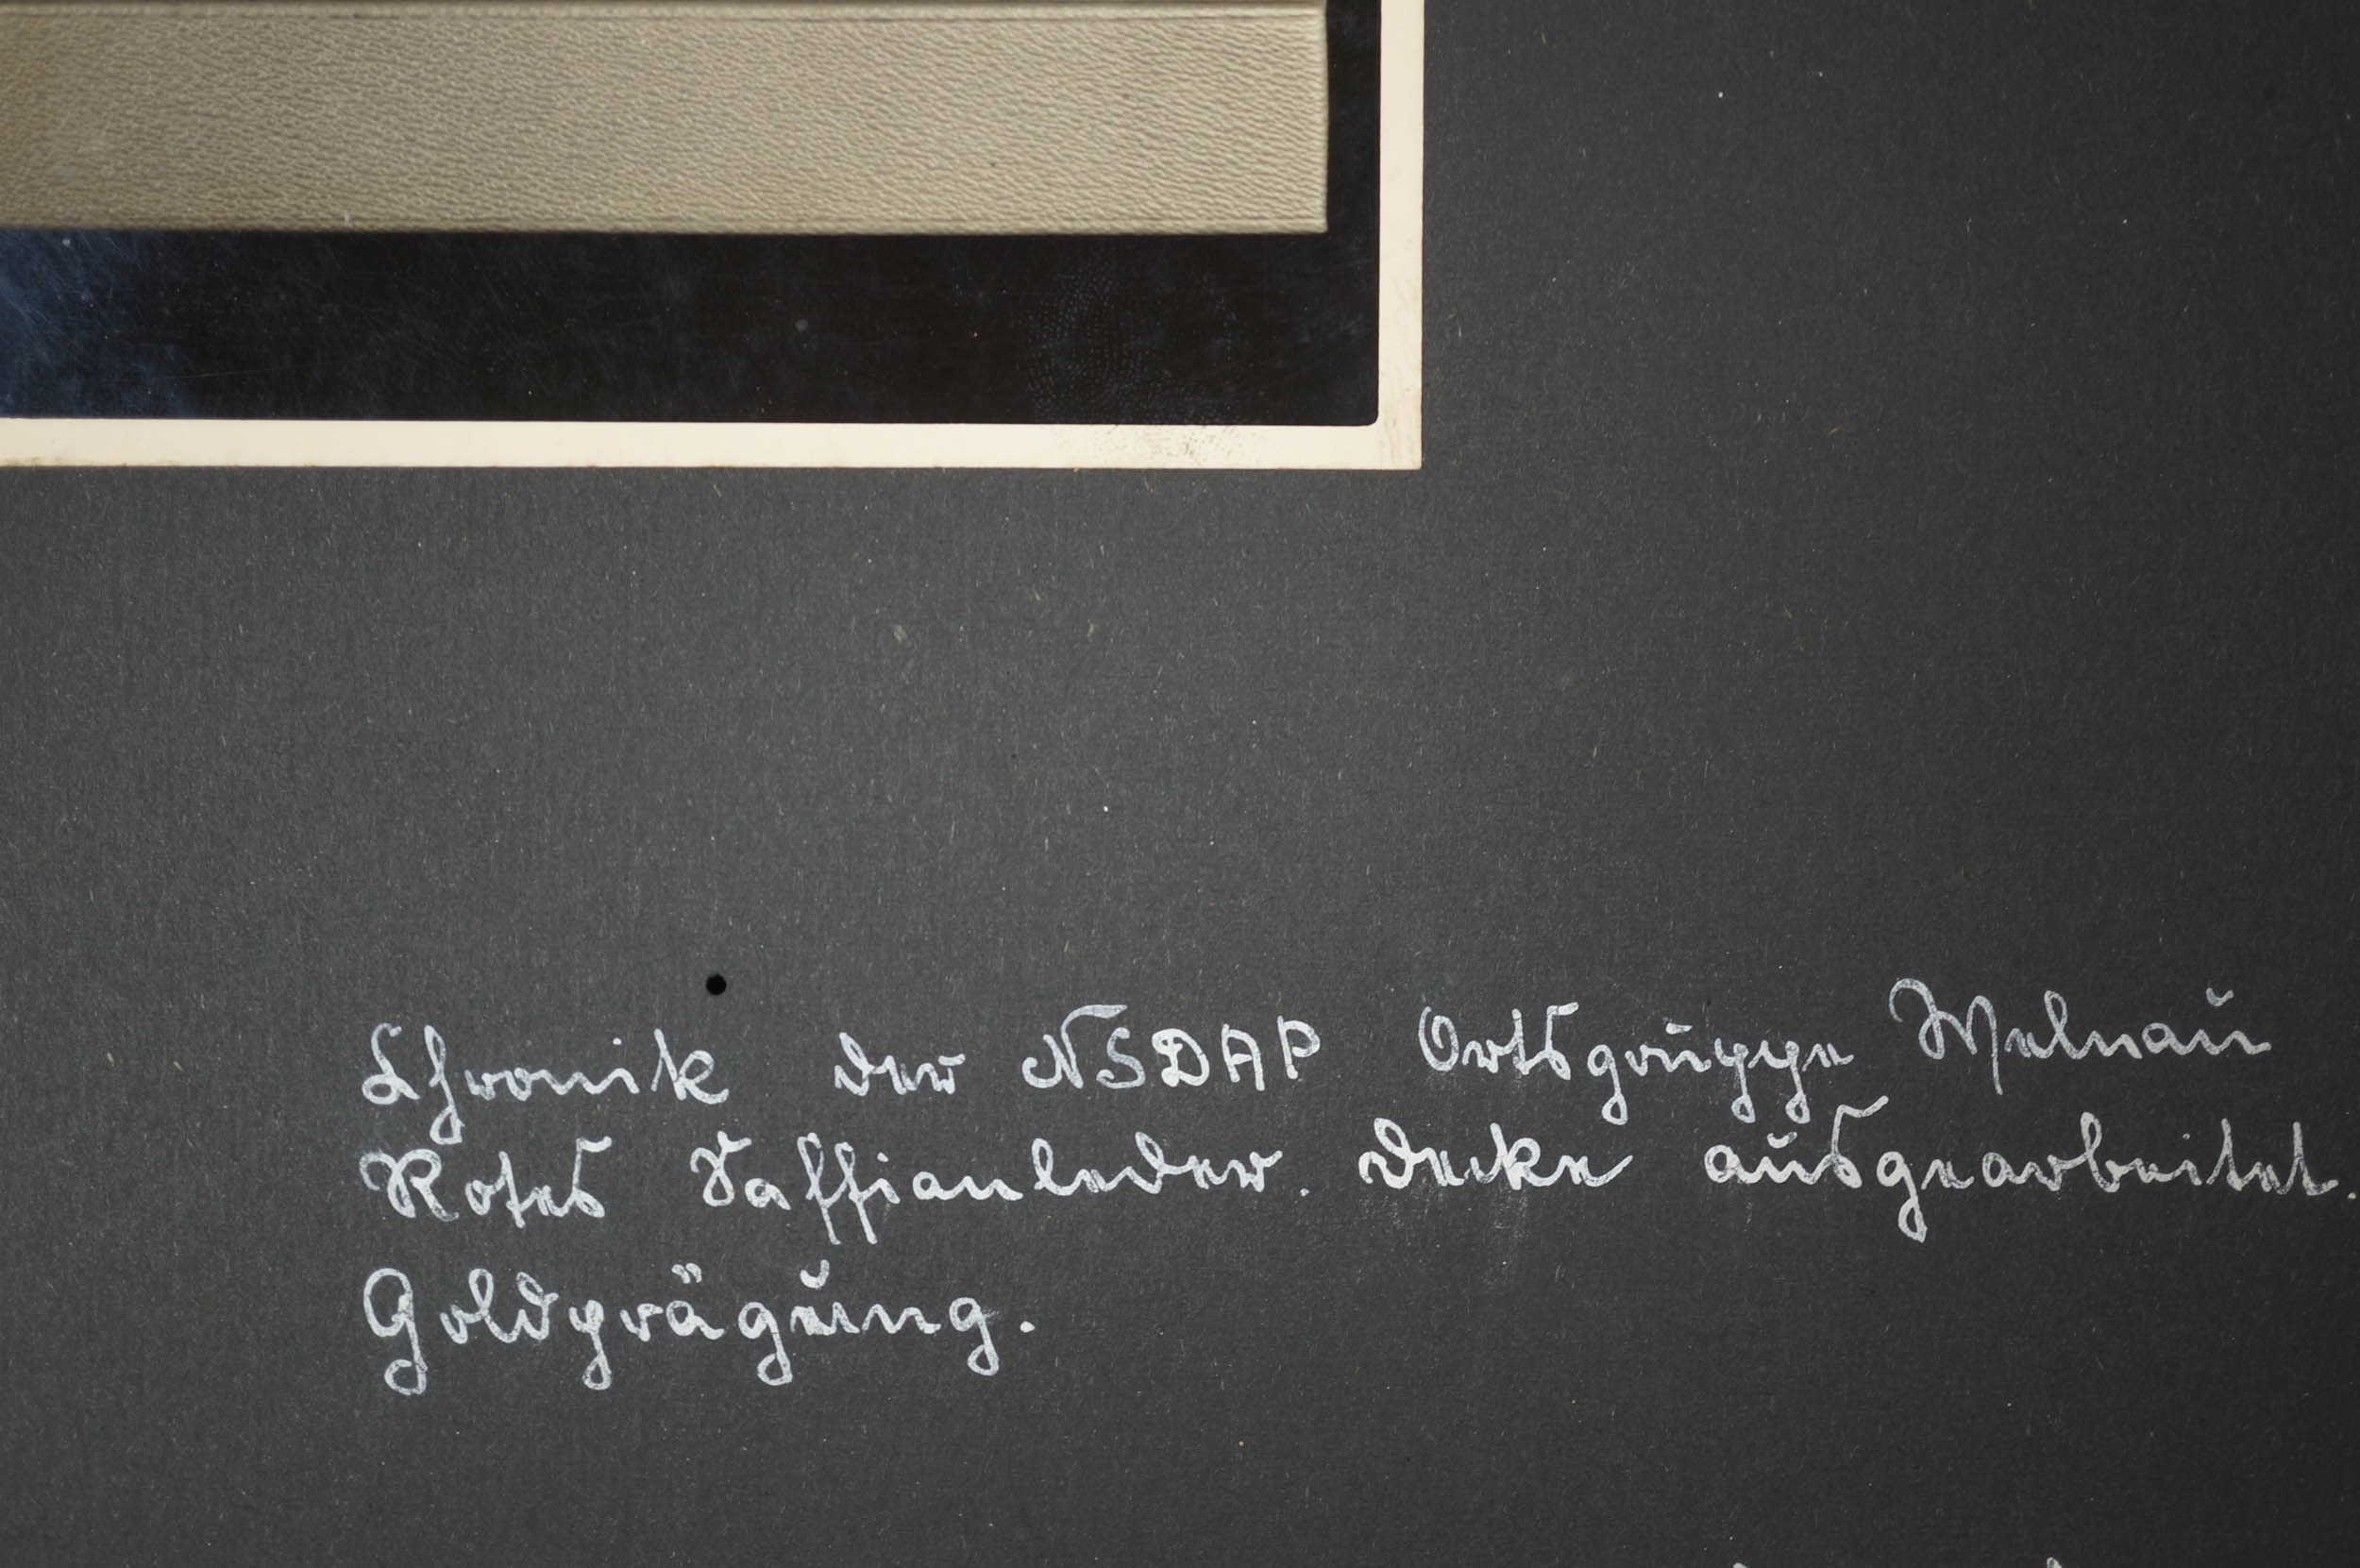 Chronik der NSDAP Ortsgruppe Melnau
Rotes Saffianleder. Decke ausgearbeitet.
Goldprägung.